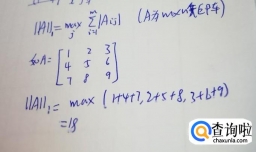 ||A||₁ = max_j Σ_{i=1}^{m} |Aij| (A为m×n矩阵)
如A = [1 2 3
4 5 6
7 8 9]
||A||₁ = max (1+4+7, 2+5+8, 3+6+9)
=18
查询啦
chaxunla